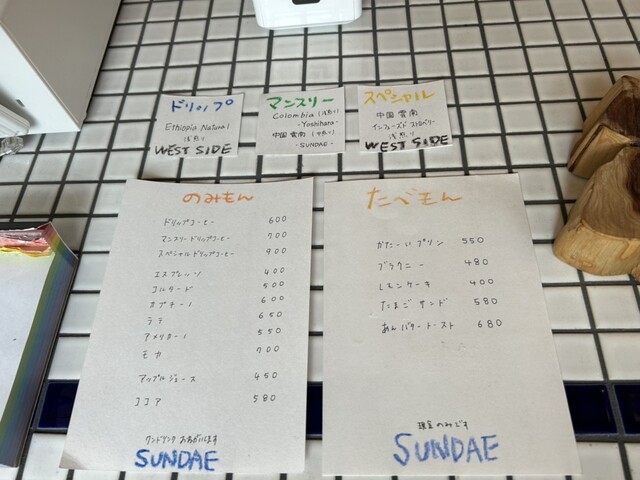 ドリップ
Ethiopia Natural
浅煎り
WEST SIDE
マンスリー
Colombia (浅煎り)
-Yoshihara-
中国雲南 (中煎り)
- SUNDAE -
スペシャル
中国 雲南
インフューズド ストロベリー
浅煎り
WEST SIDE
のみもん
ドリップコーヒー 600
マンスリードリップコーヒー 700
スペシャルドリップコーヒー 900
エスプレッソ 400
コルタード 500
カプチーノ 600
ラテ 650
アメリカーノ 550
モカ 700
アップルジュース 450
ココア 580
ワンドリンク おねがいします
SUNDAE
たべもん
かたーいプリン 550
ブラウニー 480
レモンケーキ 400
たまごサンド 580
あんバタートースト 680
現金のみです
SUNDAE